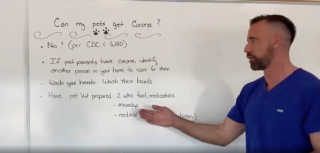 Can my pets get Corona?
• No! (per CDC & WHO)
• If pet parents have corona, identify
another person in your home to care for them
- Wash your hands. Wash their beds
- Have pet kit prepared. 2 wks food, medications